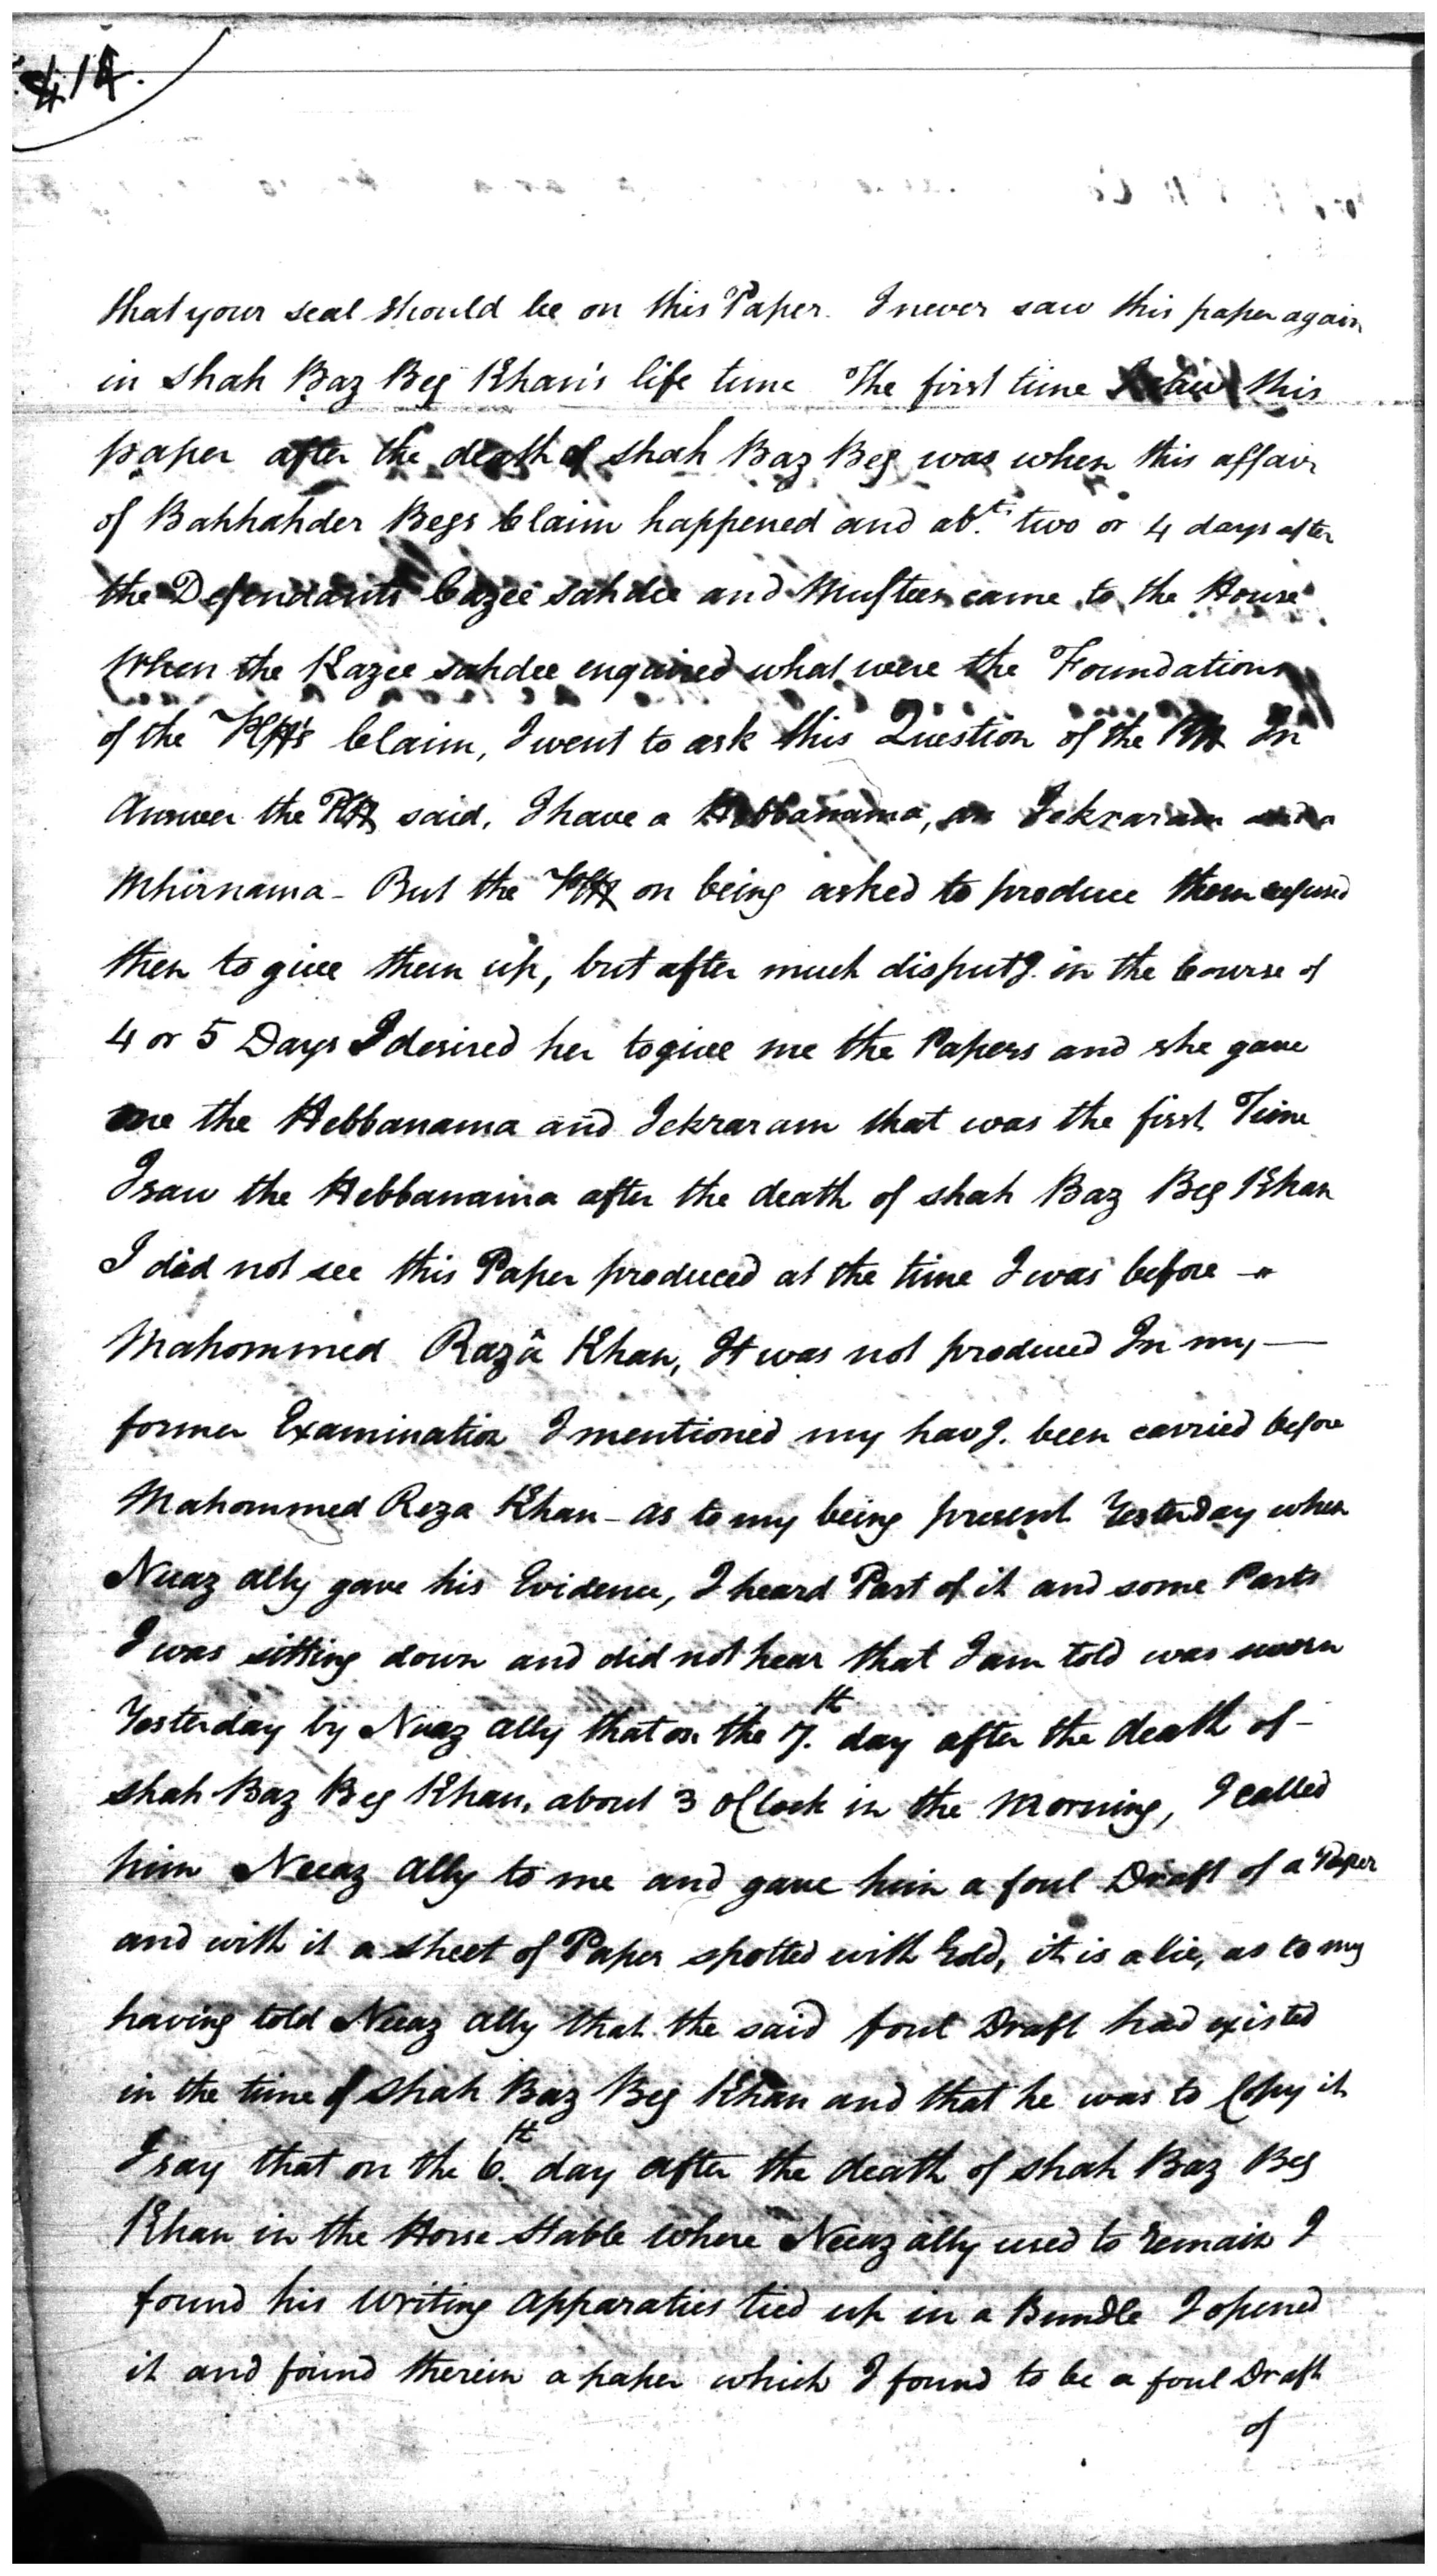 414.
that your seal should be on this Paper. I never saw this paper again
in shah Baz Beg Khan's life time The first time I saw this
paper after the death of shah Baz Beg was when this affair
of Bahhahder Begs Claim happened and abt. two or 4 days after
the Defendants Cazee sahdee and Muftees came to the House
When the Kazee sahdee enquired what were the Foundations
of the Plff's Claim, I went to ask this Question of the Plff In
Answer the Plff said, I have a Hebbanama, an Ickraram and a
Mhirnama - But the Plff on being asked to produce them refused
then to give them up, but after much disputg. in the Course of
4 or 5 Days I desired her to give me the Papers and she gave
me the Hebbanama and Ickraram that was the first Time
I saw the Hebbanama after the death of shah Baz Beg Khan
I did not see this Paper produced at the time I was before -
Mahommed Razâ Khan, It was not produced In my —
former Examination I mentioned my havg. been carried before
Mahommed Reza Khan - as to my being present Yesterday when
Neeaz ally gave his Evidence, I heard Part of it and some Parts
I was sitting down and did not hear that I am told was sworn
Yesterday by Neeaz ally that on the 7.th day after the death of -
shah Baz Beg Khan, about 3 oClock in the Morning, I called
him Neeaz ally to me and gave him a foul Draft of a Paper
and with it a sheet of Paper spotted with Gold, it is a lie, as to my
having told Neeaz ally that the said foul Draft had existed
in the time of shah Baz Beg Khan and that he was to Copy it
I say that on the 6.th day after the death of shah Baz Beg
Khan in the Horse stable where Neeaz ally used to remain I
found his Writing Apparatus tied up in a Bundle I opened
it and found therein a paper which I found to be a foul Draft
of